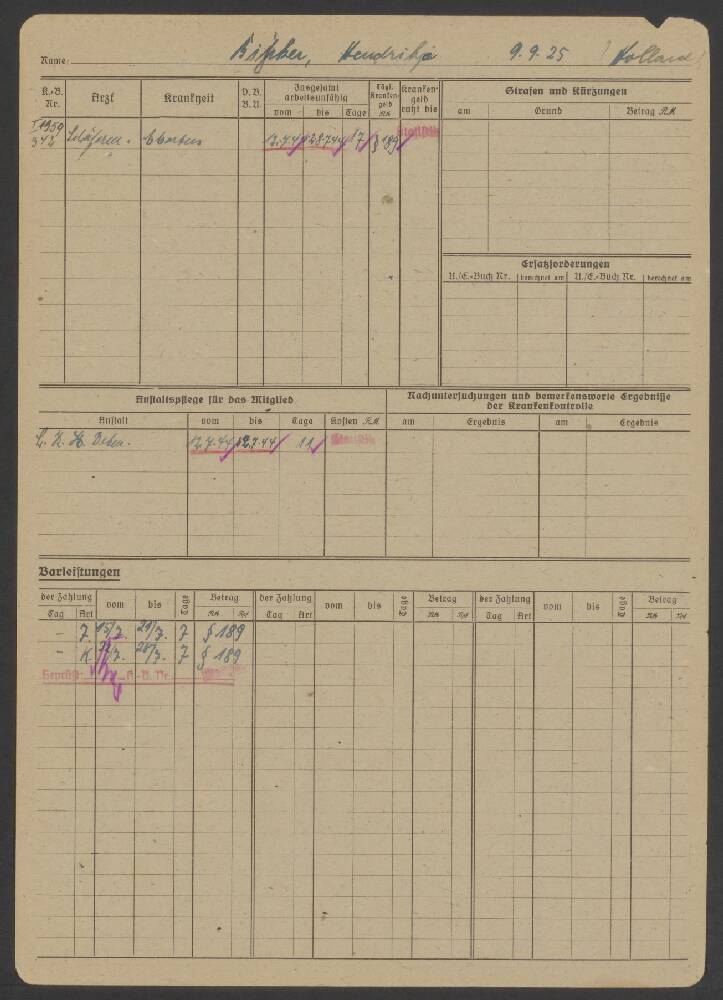 Name: Hendrikje 9.9.25 Holland
K.-B. Nr. Arzt Krankheit D. B. B. U. Insgesamt arbeitsunfähig vom bis Tage Tägl. Krankengeld RM Krankengeld ruht bis
Strafen und Kürzungen
am Grund Betrag RM
342 12.7.44 28.7.44 17 § 189 Statistik
Ersatzforderungen
U./E.-Buch Nr. berechnet am U./E.-Buch Nr. berechnet am
Anstaltspflege für das Mitglied
Nachuntersuchungen und bemerkenswerte Ergebnisse der Krankenkontrolle
Anstalt vom bis Tage Kosten RM am Ergebnis am Ergebnis
12.7.44 11 Statistik
Barleistungen
der Zahlung vom bis Tage Betrag der Zahlung vom bis Tage Betrag der Zahlung vom bis Tage Betrag
Tag Art RM Rpf Tag Art RM Rpf Tag Art RM Rpf
– 7. 15/7. 21/7. 7 § 189
– K. 22/7. 28/7. 7 § 189
Geprüft: K.-B. Nr.